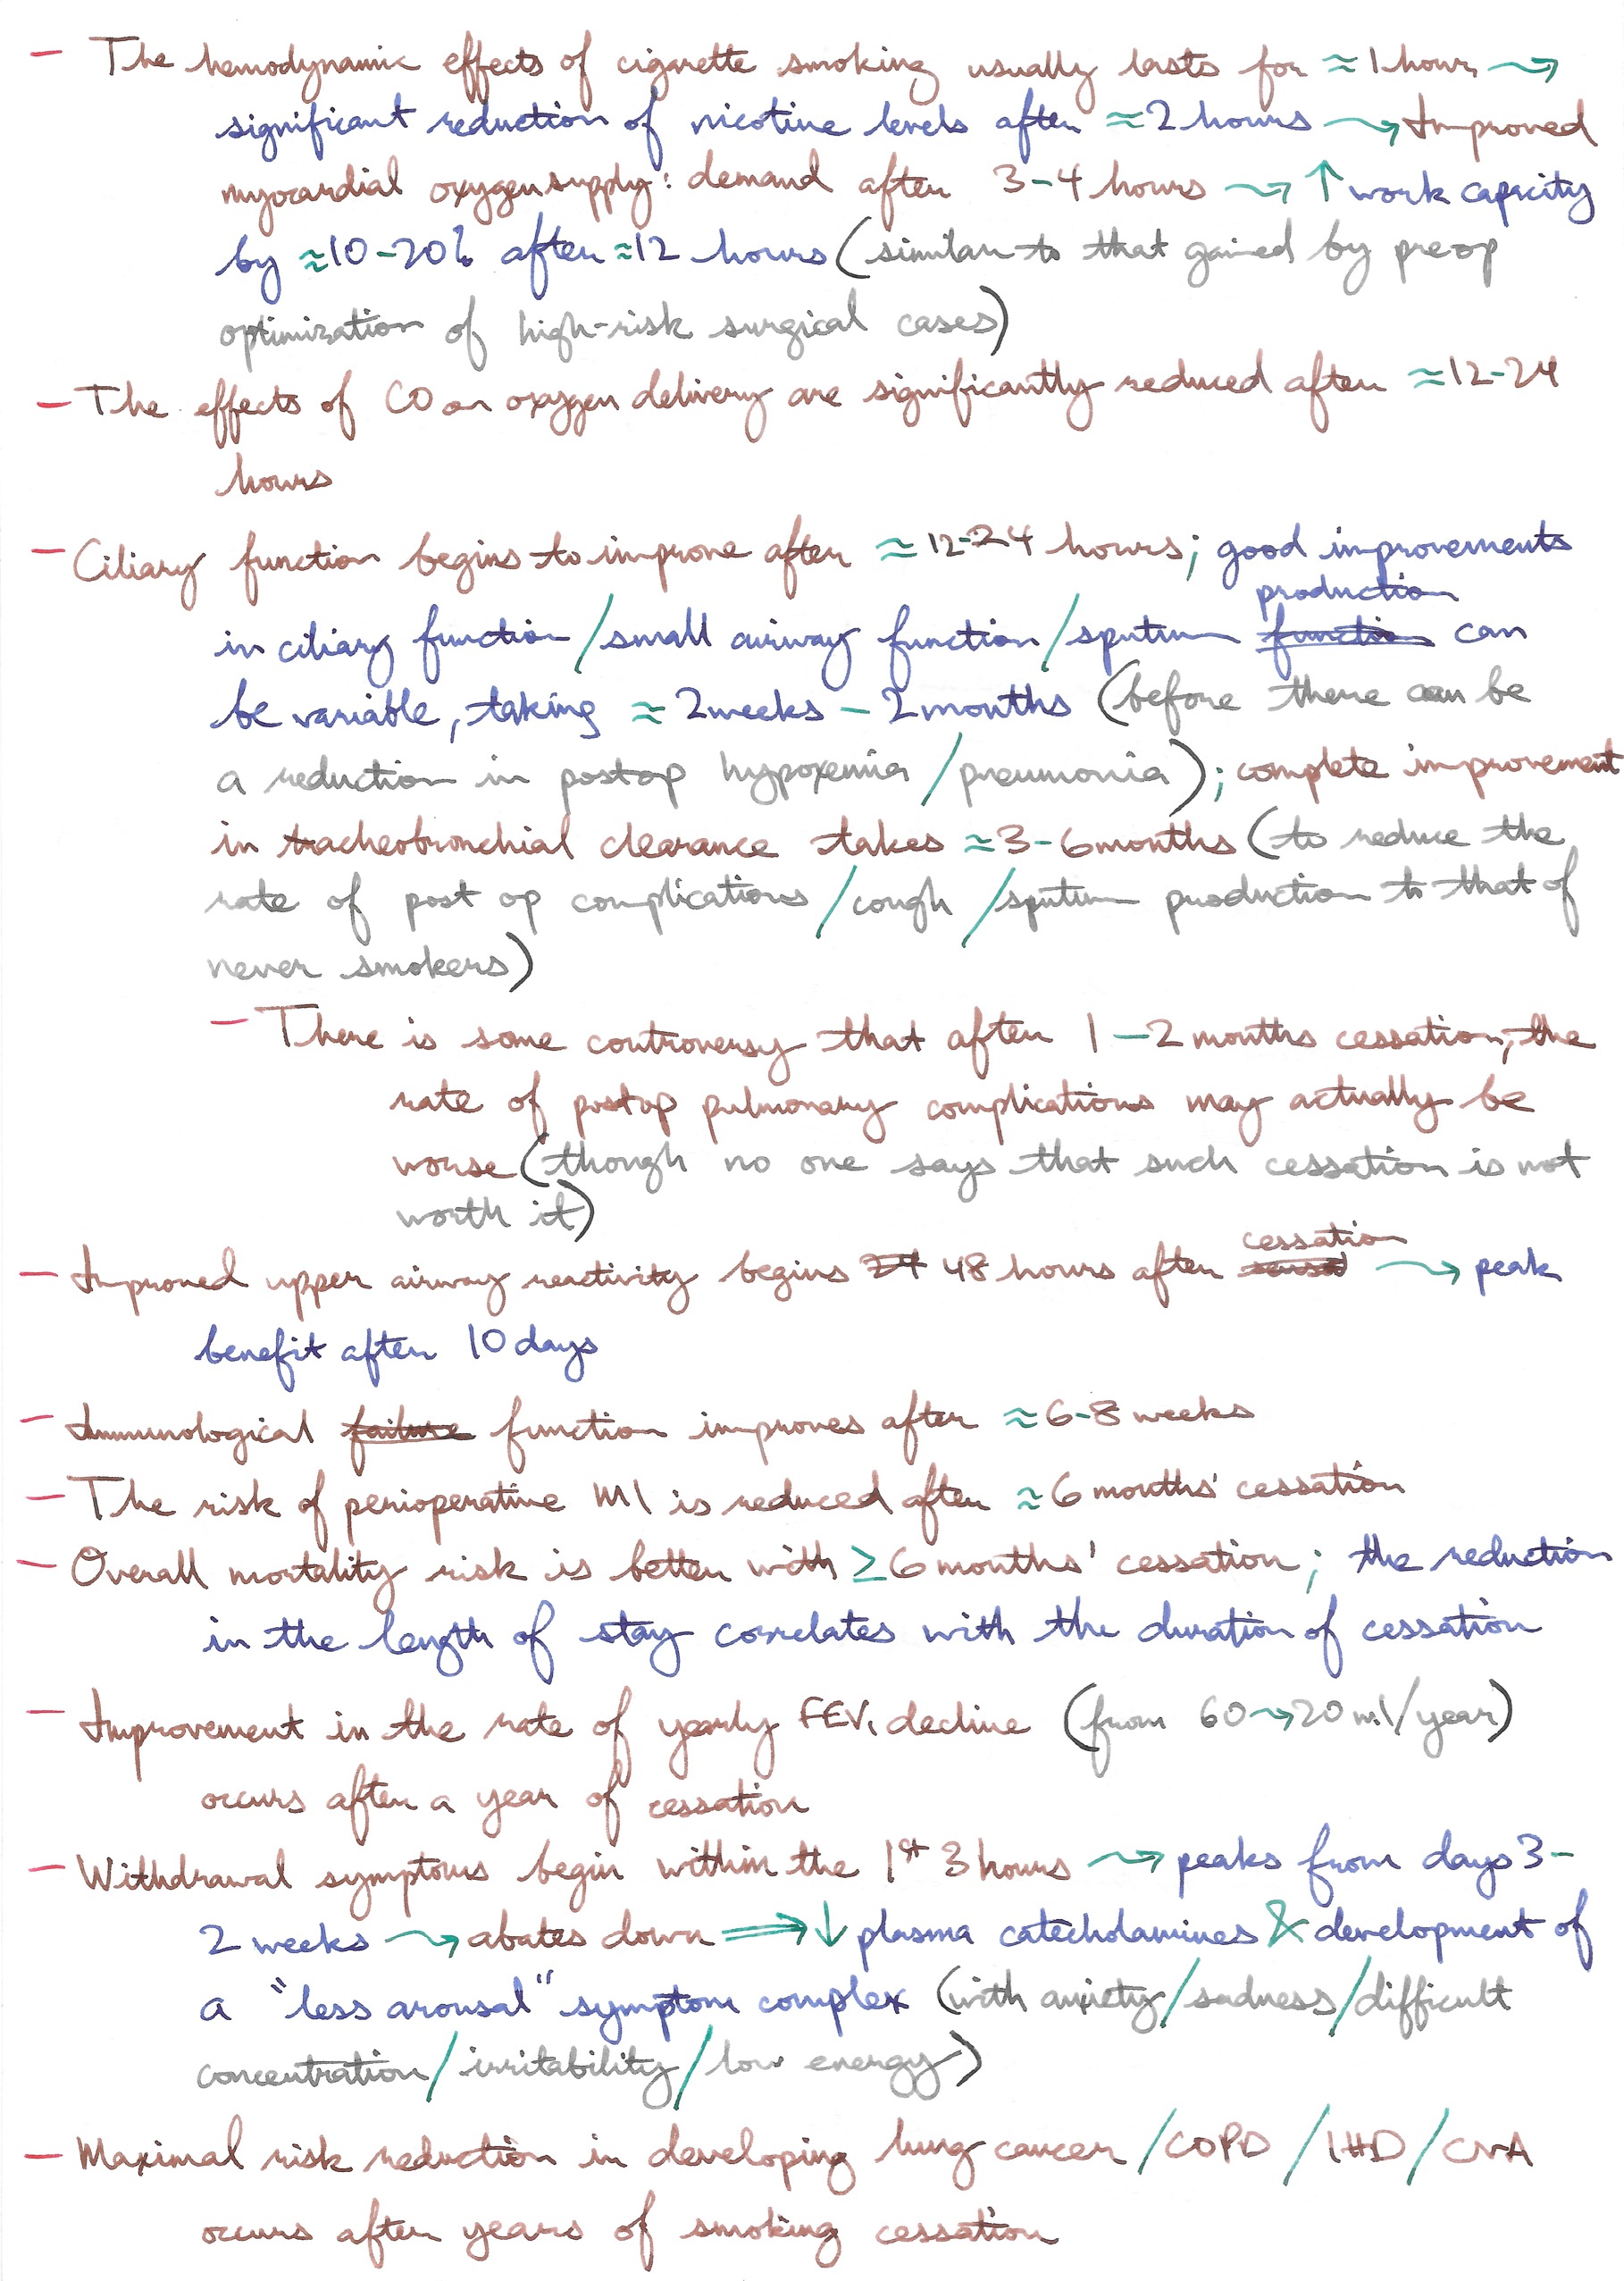 - The hemodynamic effects of cigarette smoking usually lasts for ≈ 1 hour →
significant reduction of nicotine levels after ≈ 2 hours → Improved
myocardial oxygen supply : demand after 3-4 hours → ↑ work capacity
by ≈ 10-20% after ≈ 12 hours (similar to that gained by preop
optimization of high-risk surgical cases)
- The effects of CO on oxygen delivery are significantly reduced after ≈ 12-24
hours
- Ciliary function begins to improve after ≈ 12-24 hours; good improvements
production
in ciliary function / small airway function / sputum function can
be variable, taking ≈ 2 weeks - 2 months (before there can be
a reduction in postop hypoxemia / pneumonia); complete improvement
in tracheobronchial clearance takes ≈ 3-6 months (to reduce the
rate of post op complications / cough / sputum production to that of
never smokers)
- There is some controversy that after 1-2 months cessation, the
rate of postop pulmonary complications may actually be
worse (though no one says that such cessation is not
worth it)
cessation
- Improved upper airway reactivity begins 48 hours after → peak
benefit after 10 days
- Immunological failure function improves after ≈ 6-8 weeks
- The risk of perioperative MI is reduced after ≈ 6 months' cessation
- Overall mortality risk is better with ≥ 6 months' cessation; the reduction
in the length of stay correlates with the duration of cessation
- Improvement in the rate of yearly FEV₁ decline (from 60 → 20 ml/year)
occurs after a year of cessation
- Withdrawal symptoms begin within the 1st 3 hours → peaks from days 3-
2 weeks → abates down ⇒ ↓ plasma catecholamines & development of
a "less arousal" symptom complex (with anxiety / sadness / difficult
concentration / irritability / low energy)
- Maximal risk reduction in developing lung cancer / COPD / IHD / CVA
occurs after years of smoking cessation